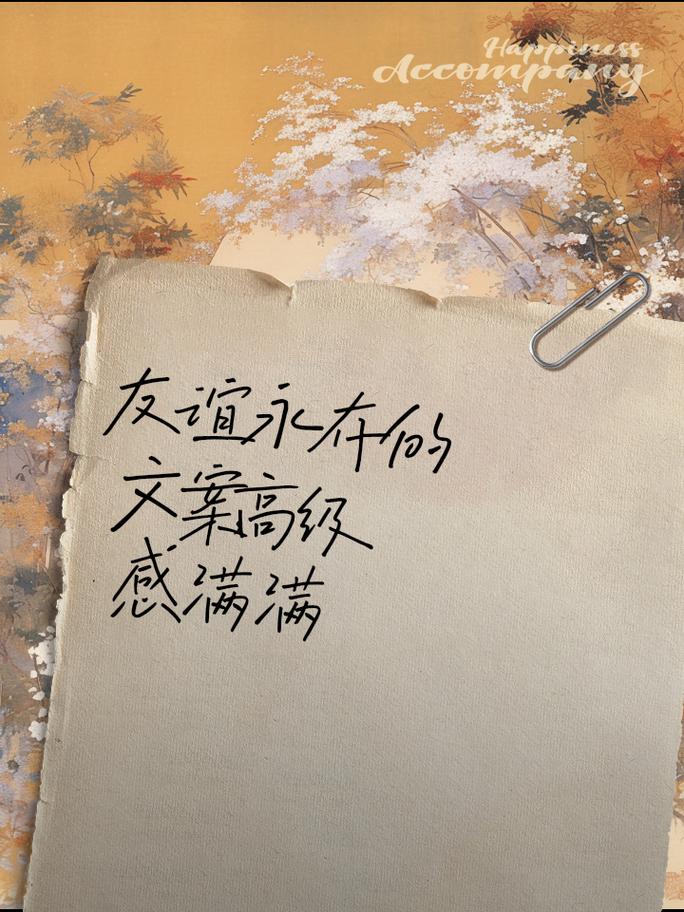 Happiness
Accompany
友谊永存的
文案高级
感满满